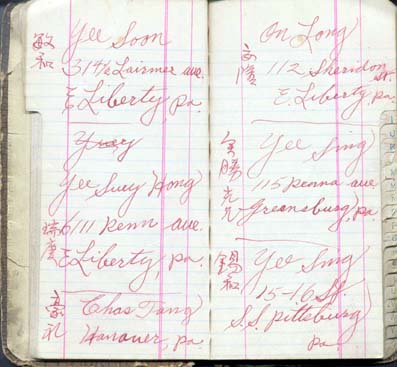 敏和
Yee Soon
314½ Lairmer ave.
E. Liberty, pa.
Yuey
Yee Suey Hong
6111 Penn ave.
E Liberty, pa.
Chas Tang
Hanover, pa.
On Long
112 Sheridon
St.
E. Liberty, pa.
Yee Sing
115 Penna ave
Greensburg, pa
錫和
Yee Sing
15-16 St.
S.S. pittsburg
pa.